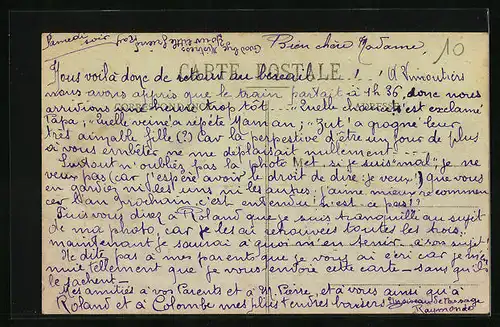 Samedi soir
Good bye Mistress
Your little friend
Ray
Bien chère Madame,
10
CARTE POSTALE
Nous voilà donc de retour au bercail ! A Eymoutiers
nous avons appris que le train partait à 4h 36, donc nous
CORRESPONDANCE
ADRESSE
arrivions une heure trop tôt. "Quelle chance" s'est exclamé
Papa, "Quelle veine" a répété Maman; "Zut" a grogné leur
très aimable fille (?) Car la perpestive d'être un jour de plus
à vous embêter ne me déplaisait nullement. -
Surtout n'oubliez pas la photo et si je suis "mal" je ne
veux pas (car j'espère avoir le droit de dire je veux!) que vous
en gardiez ni les uns ni les autres. J'aime mieux recommen
cer l'an prochain c'est entendu n'est-ce pas!?
Puis vous direz à Roland que je suis tranquille au sujet
de ma photo, car je les ai retrouvées toutes les trois,
maintenant je saurai à quoi m'en tenir à son sujet!
Ne dites pas à mes parents que je vous ai écri car je m'en
nuie tellement que je vous envoie cette carte sans qu'ils
le sachent -
Mes amitiés à vos Parents et à M. Pierre, et à vous ainsi qu'à
Roland et à Colombe mes plus tendres baisers
Raymonde